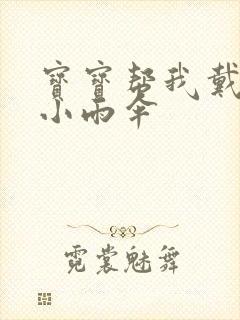 寶寶帮我戴
小雨伞
霓裳魅舞